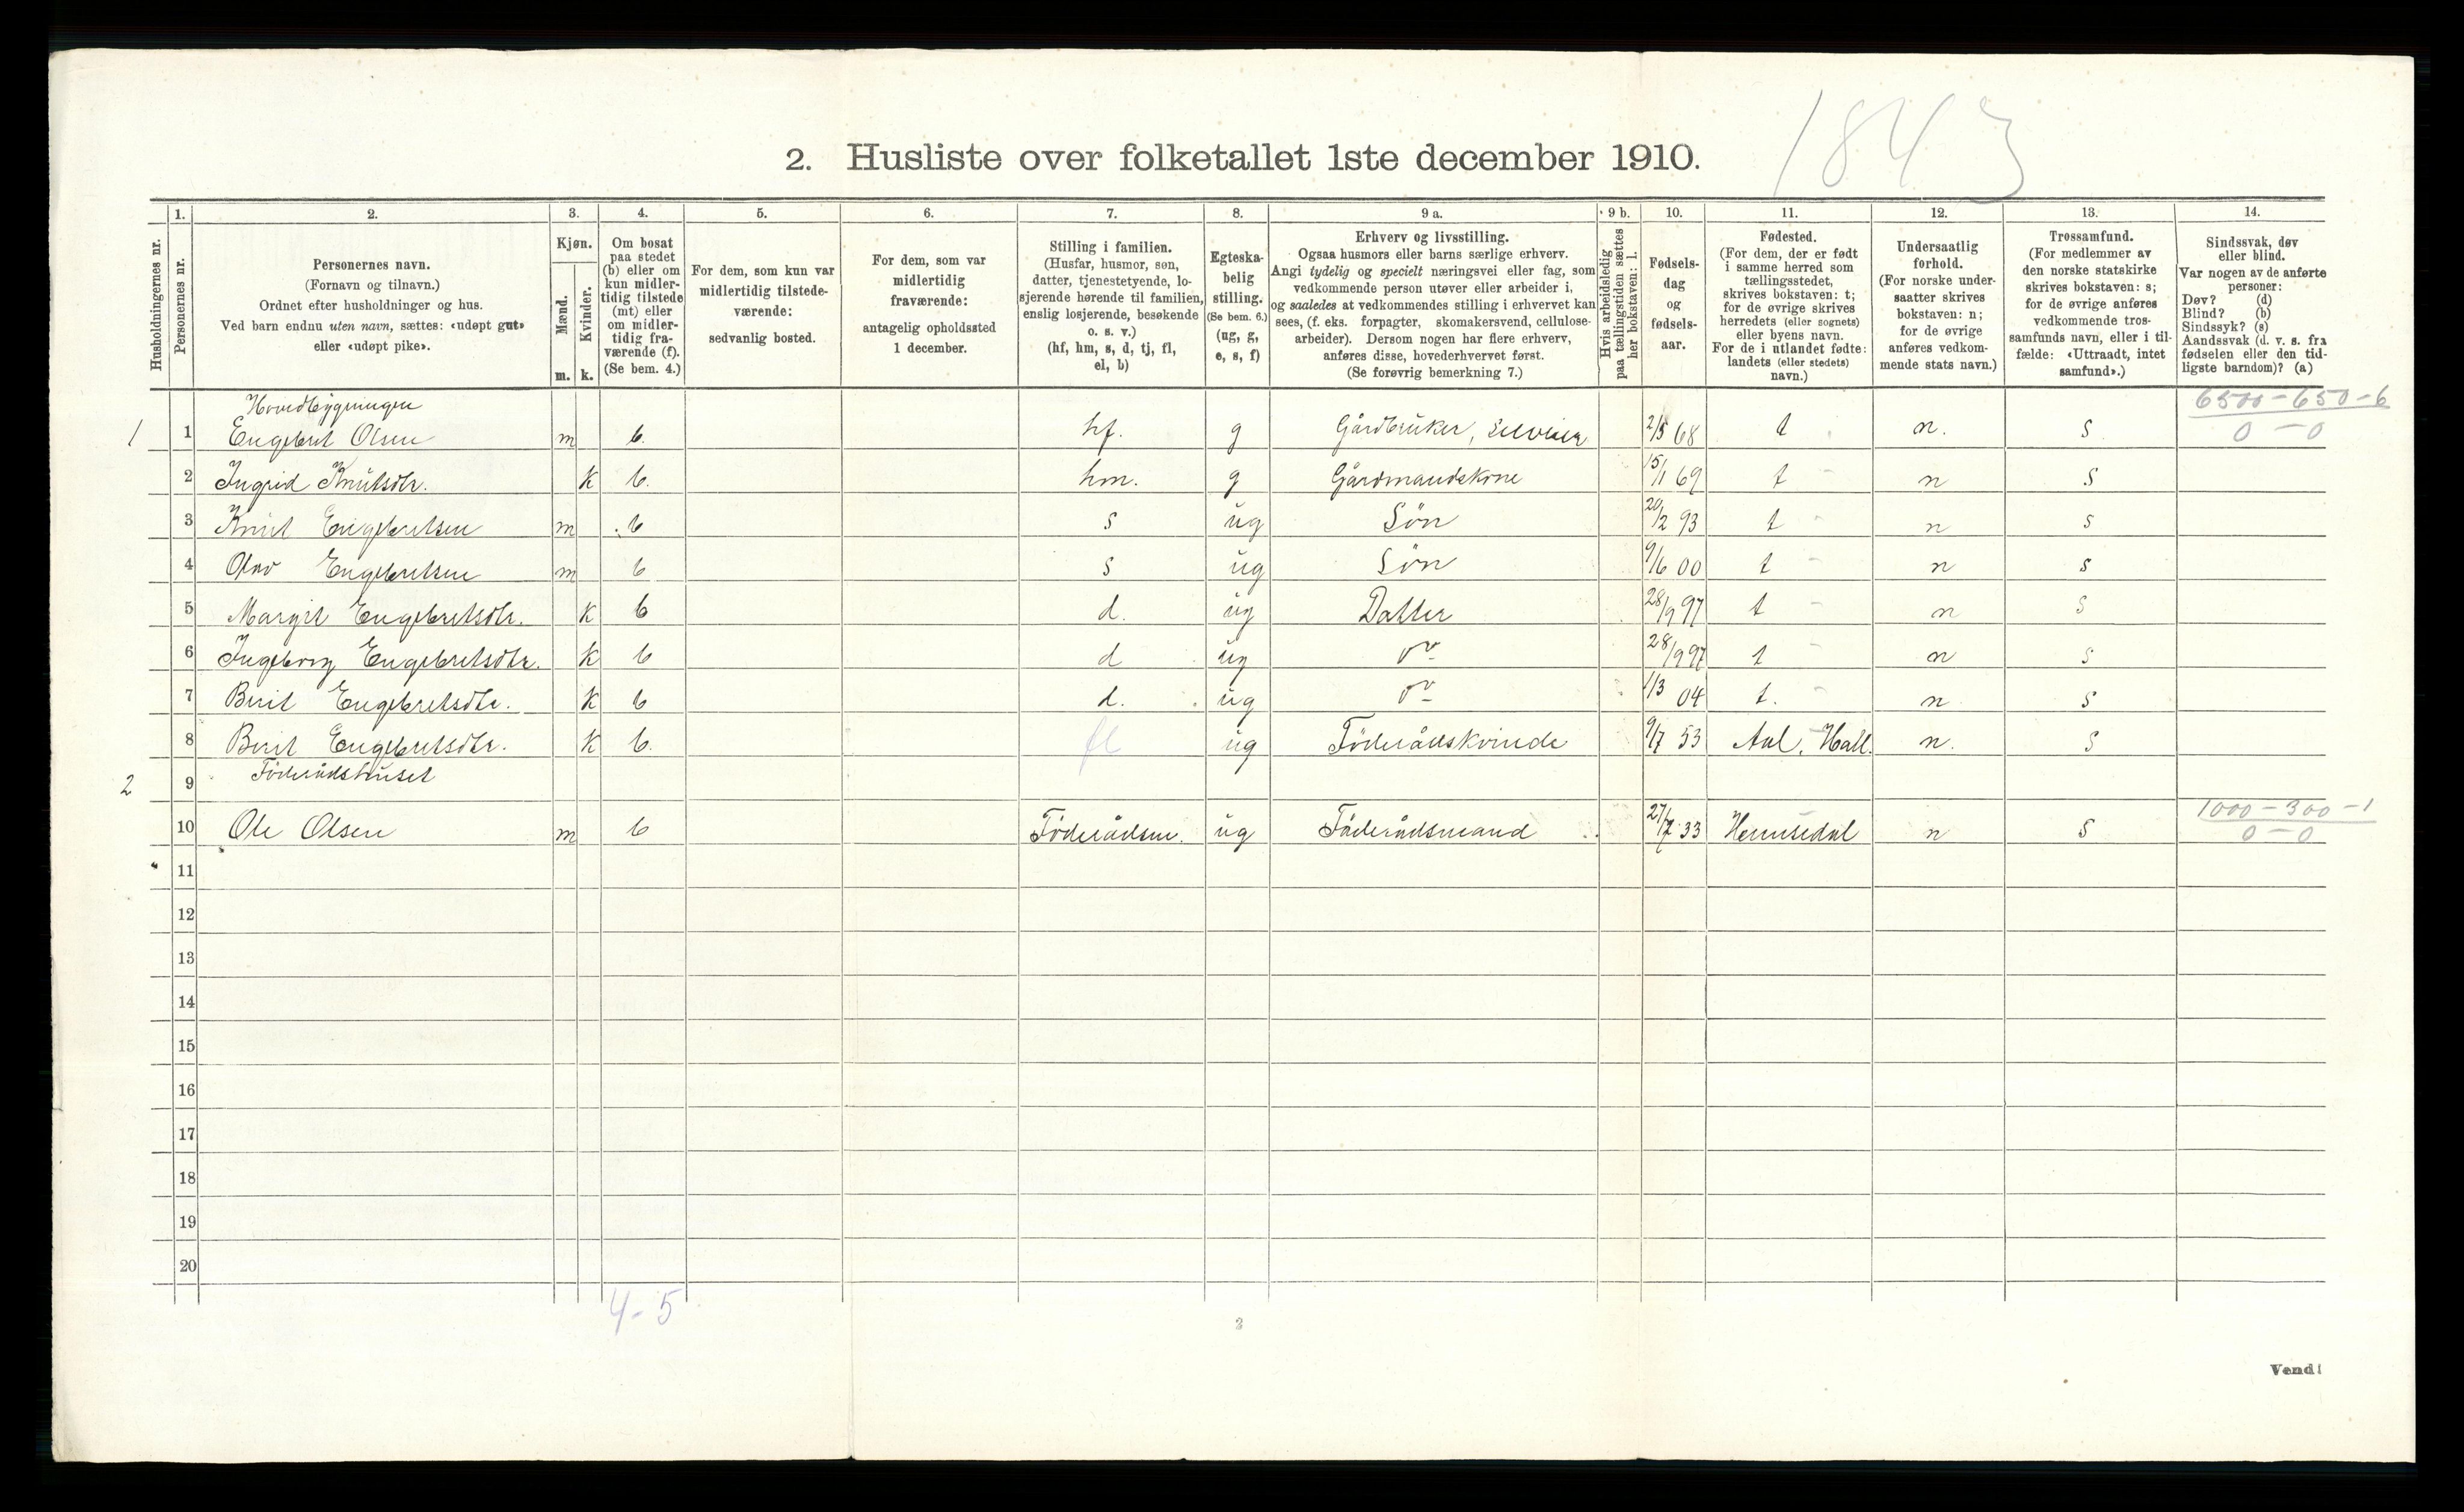 1843
2. Husliste over folketallet 1ste december 1910.
Husholdningernes nr.
1. 2. 3. 4. 5. 6. 7. 8. 9 a. 9 b. 10. 11. 12. 13. 14.
Personernes nr.
Personernes navn.
(Fornavn og tilnavn.)
Ordnet efter husholdninger og hus.
Ved barn endnu uten navn, sættes: «udøpt gut»
eller «udøpt pike».
Kjøn.
Mænd.
Kvinder.
m. k.
Om bosat
paa stedet
(b) eller om
kun midler-
tidig tilstede
(mt) eller
om midler-
tidig fra-
værende (f).
(Se bem. 4.)
For dem, som kun var
midlertidig tilstede-
værende:
sedvanlig bosted.
For dem, som var
midlertidig
fraværende:
antagelig opholdssted
1 december.
Stilling i familien.
(Husfar, husmor, søn,
datter, tjenestetyende, lo-
sjerende hørende til familien,
enslig losjerende, besøkende
o. s. v.)
(hf, hm, s, d, tj, fl,
el, b)
Egteska-
belig
stilling.
(Se bem. 6.)
(ug, g,
e, s, f)
Erhverv og livsstilling.
Ogsaa husmors eller barns særlige erhverv.
Angi tydelig og specielt næringsvei eller fag, som
vedkommende person utøver eller arbeider i,
og saaledes at vedkommendes stilling i erhvervet kan
sees, (f. eks. forpagter, skomakersvend, cellulose-
arbeider). Dersom nogen har flere erhverv,
anføres disse, hovederhvervet først.
(Se forøvrig bemerkning 7.)
Hvis arbeidsledig
paa tællingstiden sættes
her bokstaven: l.
Fødsels-
dag
og
fødsels-
aar.
Fødested.
(For dem, der er født
i samme herred som
tællingsstedet,
skrives bokstaven: t;
for de øvrige skrives
herredets (eller sognets)
eller byens navn.
For de i utlandet fødte:
landets (eller stedets)
navn.)
Undersaatlig
forhold.
(For norske under-
saatter skrives
bokstaven: n;
for de øvrige
anføres vedkom-
mende stats navn.)
Trossamfund.
(For medlemmer av
den norske statskirke
skrives bokstaven: s;
for de øvrige anføres
vedkommende tros-
samfunds navn, eller i til-
fælde: «Uttraadt, intet
samfund».)
Sindssvak, døv
eller blind.
Var nogen av de anførte
personer:
Døv? (d)
Blind? (b)
Sindssyk? (s)
Aandssvak (d. v. s. fra
fødselen eller den tid-
ligste barndom)? (a)
Hovedbygningen 6500-650-6
1 1 Engebret Olsen m b. hf. g Gårdbruker, Selveier 2/5 68 t n. s 0-0
2 Ingrid Knutsdtr. k b. hm. g Gårdmandskone 15/1 69 t n s
3 Knut Engebretsen m b s ug Søn 20/2 93 t n s
4 Olav Engebretsen m b s ug Søn 9/6 00 t n s
5 Margit Engebretsdtr. k b d. ug Datter 28/9 97 t n s
6 Ingeborg Engebretsdtr. k b d ug do 28/9 97 t n s
7 Berit Engebretsdtr. k b d. ug do 1/3 04 t. n s
8 Berit Engebretsdtr. k b. fl ug Föderådskvinde 9/7 53 Aal, Hall. n. s
2 9 Föderådshuset
10 Ole Olsen m b Föderådsm. ug Föderådsmand 27/7 33 Hemsedal n s 1000-300-1
0-0
11
12
13
14
15
16
17
18
19
20
4-5
2
Vend!